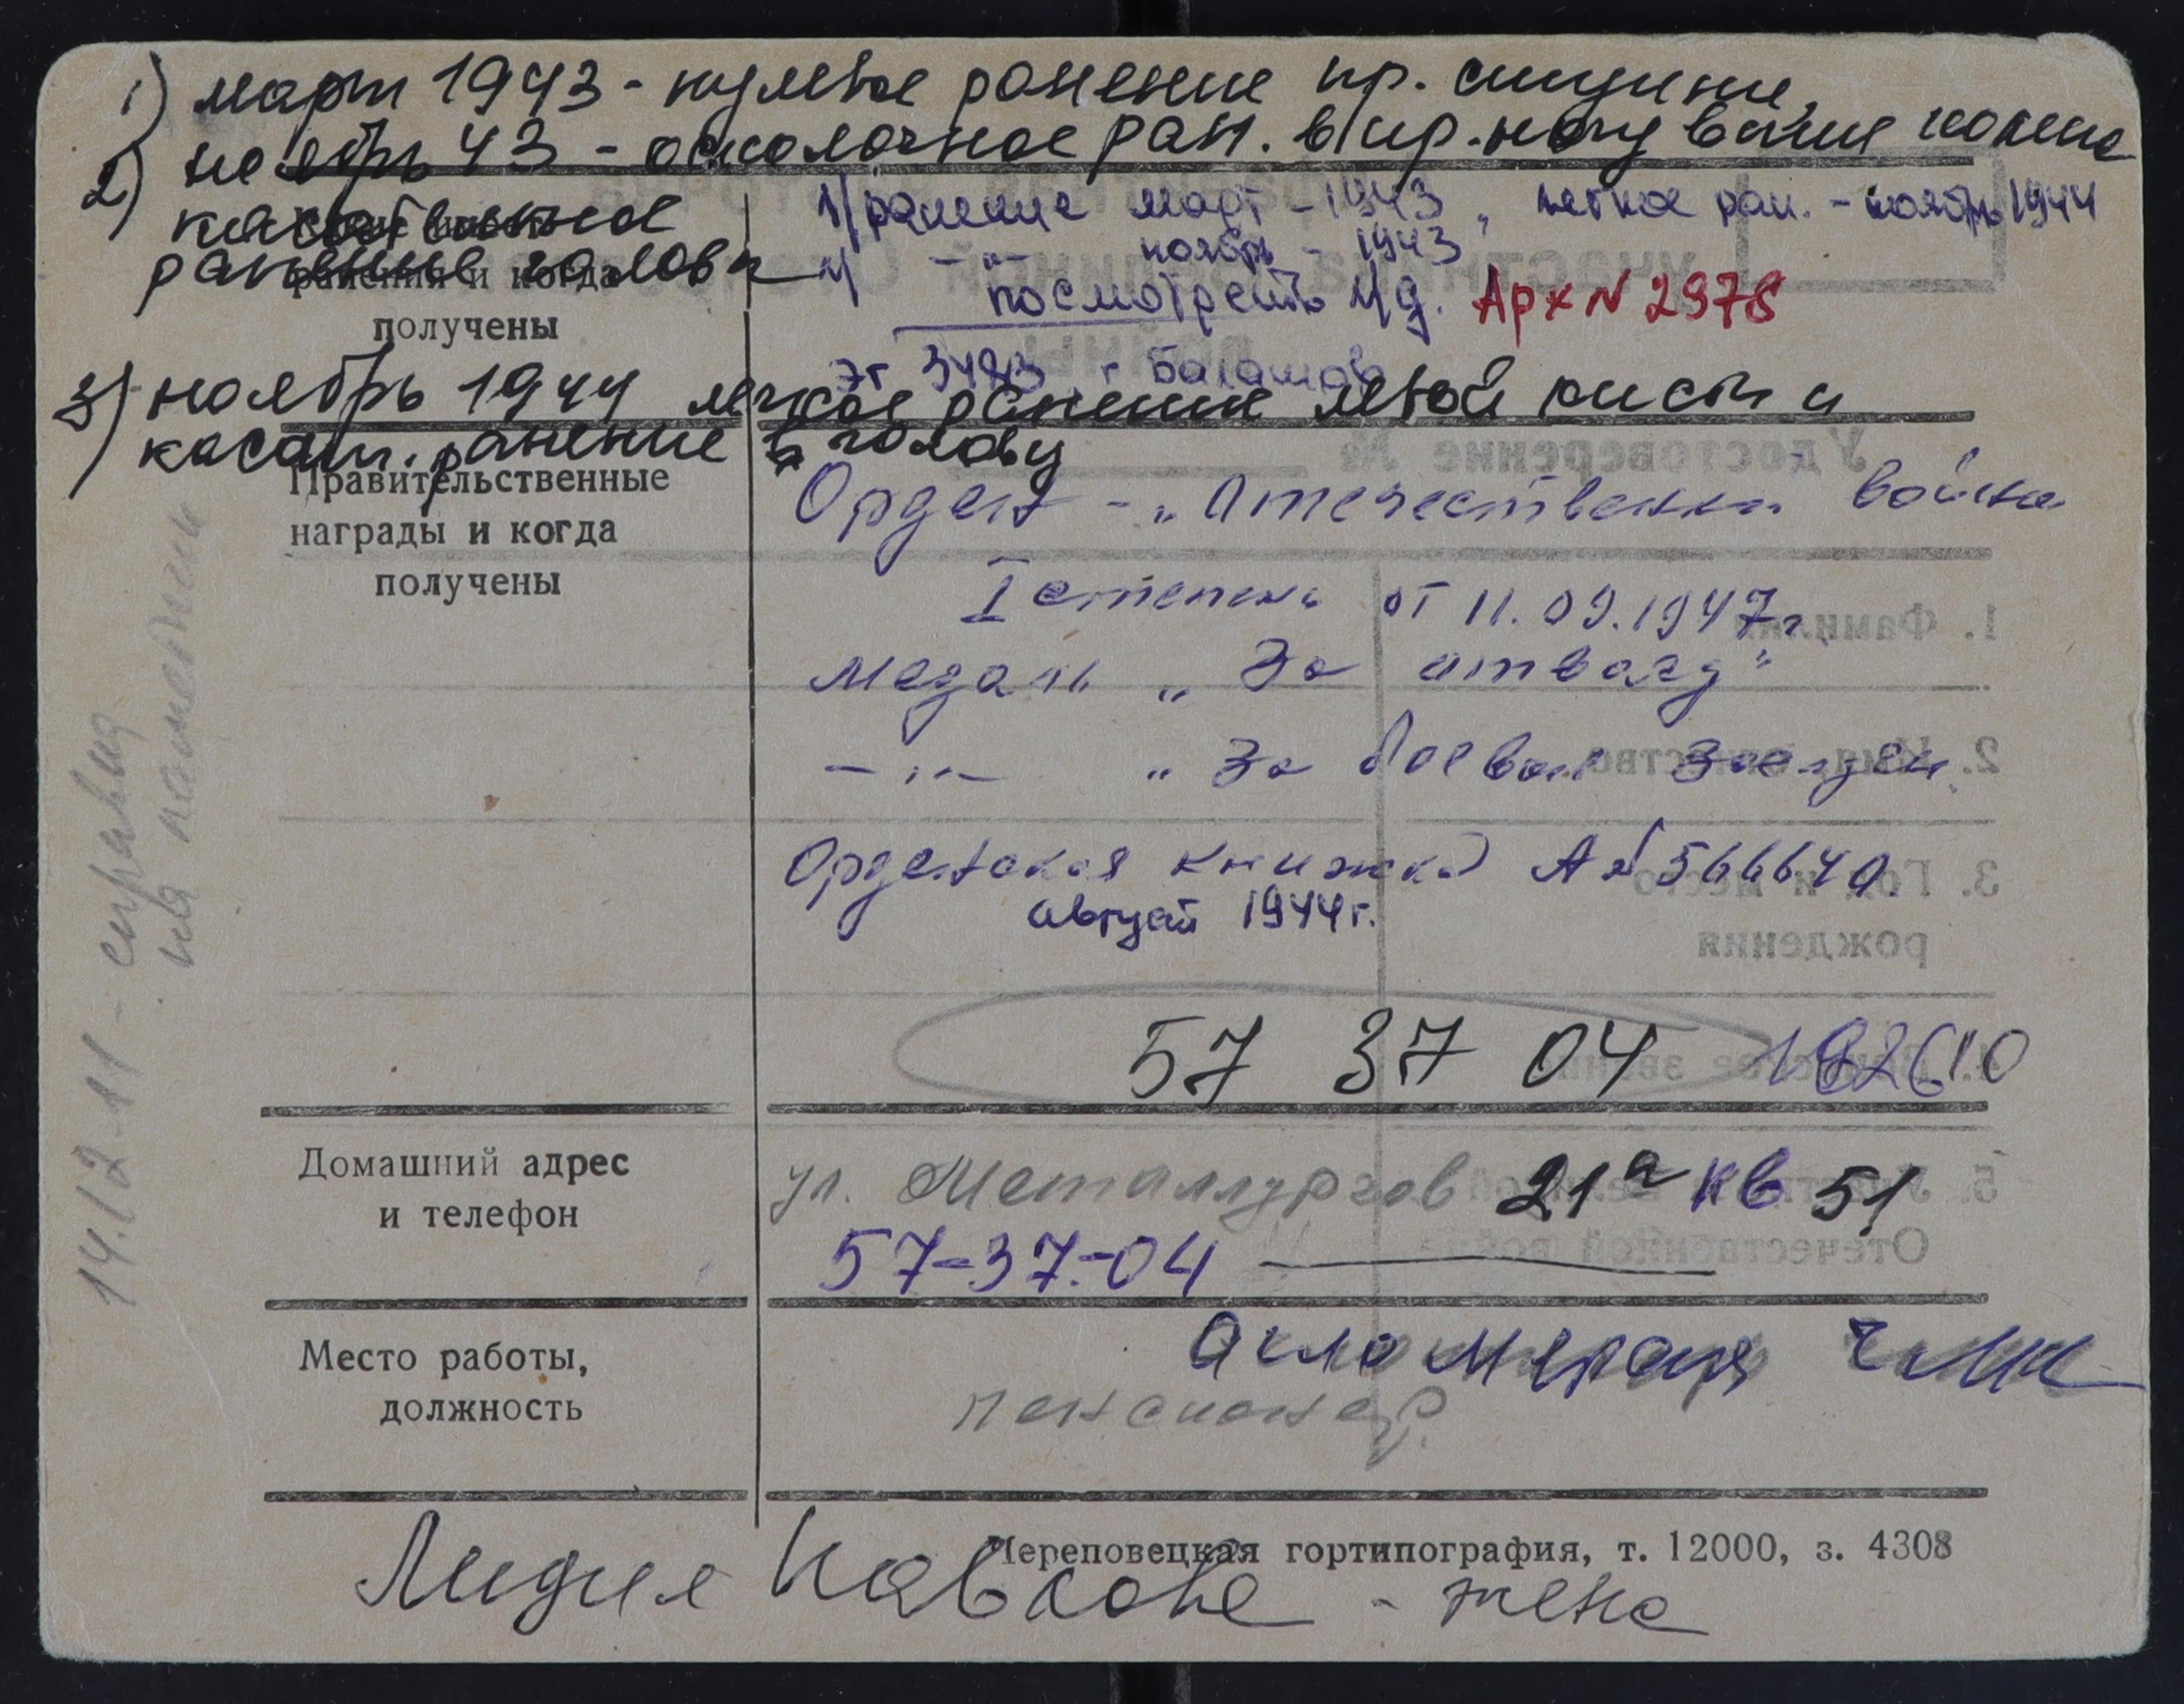 1) март 1943 - пулевое ранение пр. ступни,
2) ноябрь 43 - осколочное ран. в пр. ногу выше колена
касательное
ранение головы
Какие имеет
ранения и когда
получены
1/ ранение март - 1943, легкое ран. - ноябрь 1944
2/ -"- ноябрь - 1943
посмотреть л/д. Арх N 2978
эг 3493 г Балашов
3) ноябрь 1944 легкое ранение левой кисти и
касат. ранение в голову
Правительственные
награды и когда
получены
Орден - „Отечественная война
I степень от 11.09.1947г
медаль „За отвагу"
-"- „За боевые заслуги
Орденская книжка А № 566640
август 1944 г.
57 37 04
Домашний адрес
и телефон
ул. Металлургов 21а кв 51
57-37-04
Место работы,
должность
ЧМК
пенсионер
Череповецкая гортипография, т. 12000, з. 4308
Лидия Павловна - жена
14.12-11 - справка
для памятника
Удостоверение №
1. Фамилия
2. Имя, отчество
3. Год и место
рождения
4. Воинское звание
5. Участие в Великой
Отечественной войне